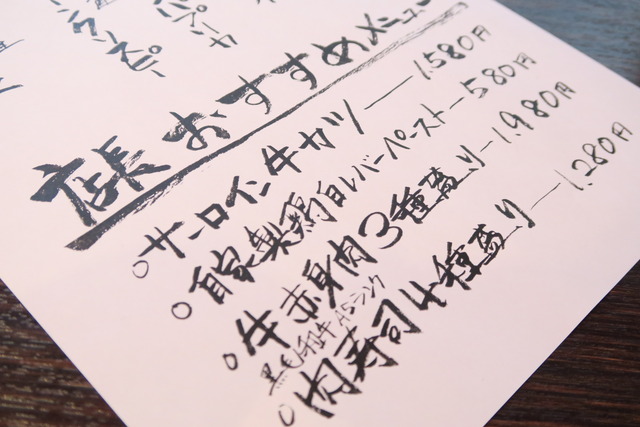 店長おすすめメニュー
○サーロイン牛カツー1,580円
○自家製鶏白レバーペーストー580円
○牛赤身肉3種盛りー1,980円
黒毛和牛A5ランク
○肉寿司4種盛りー1,280円